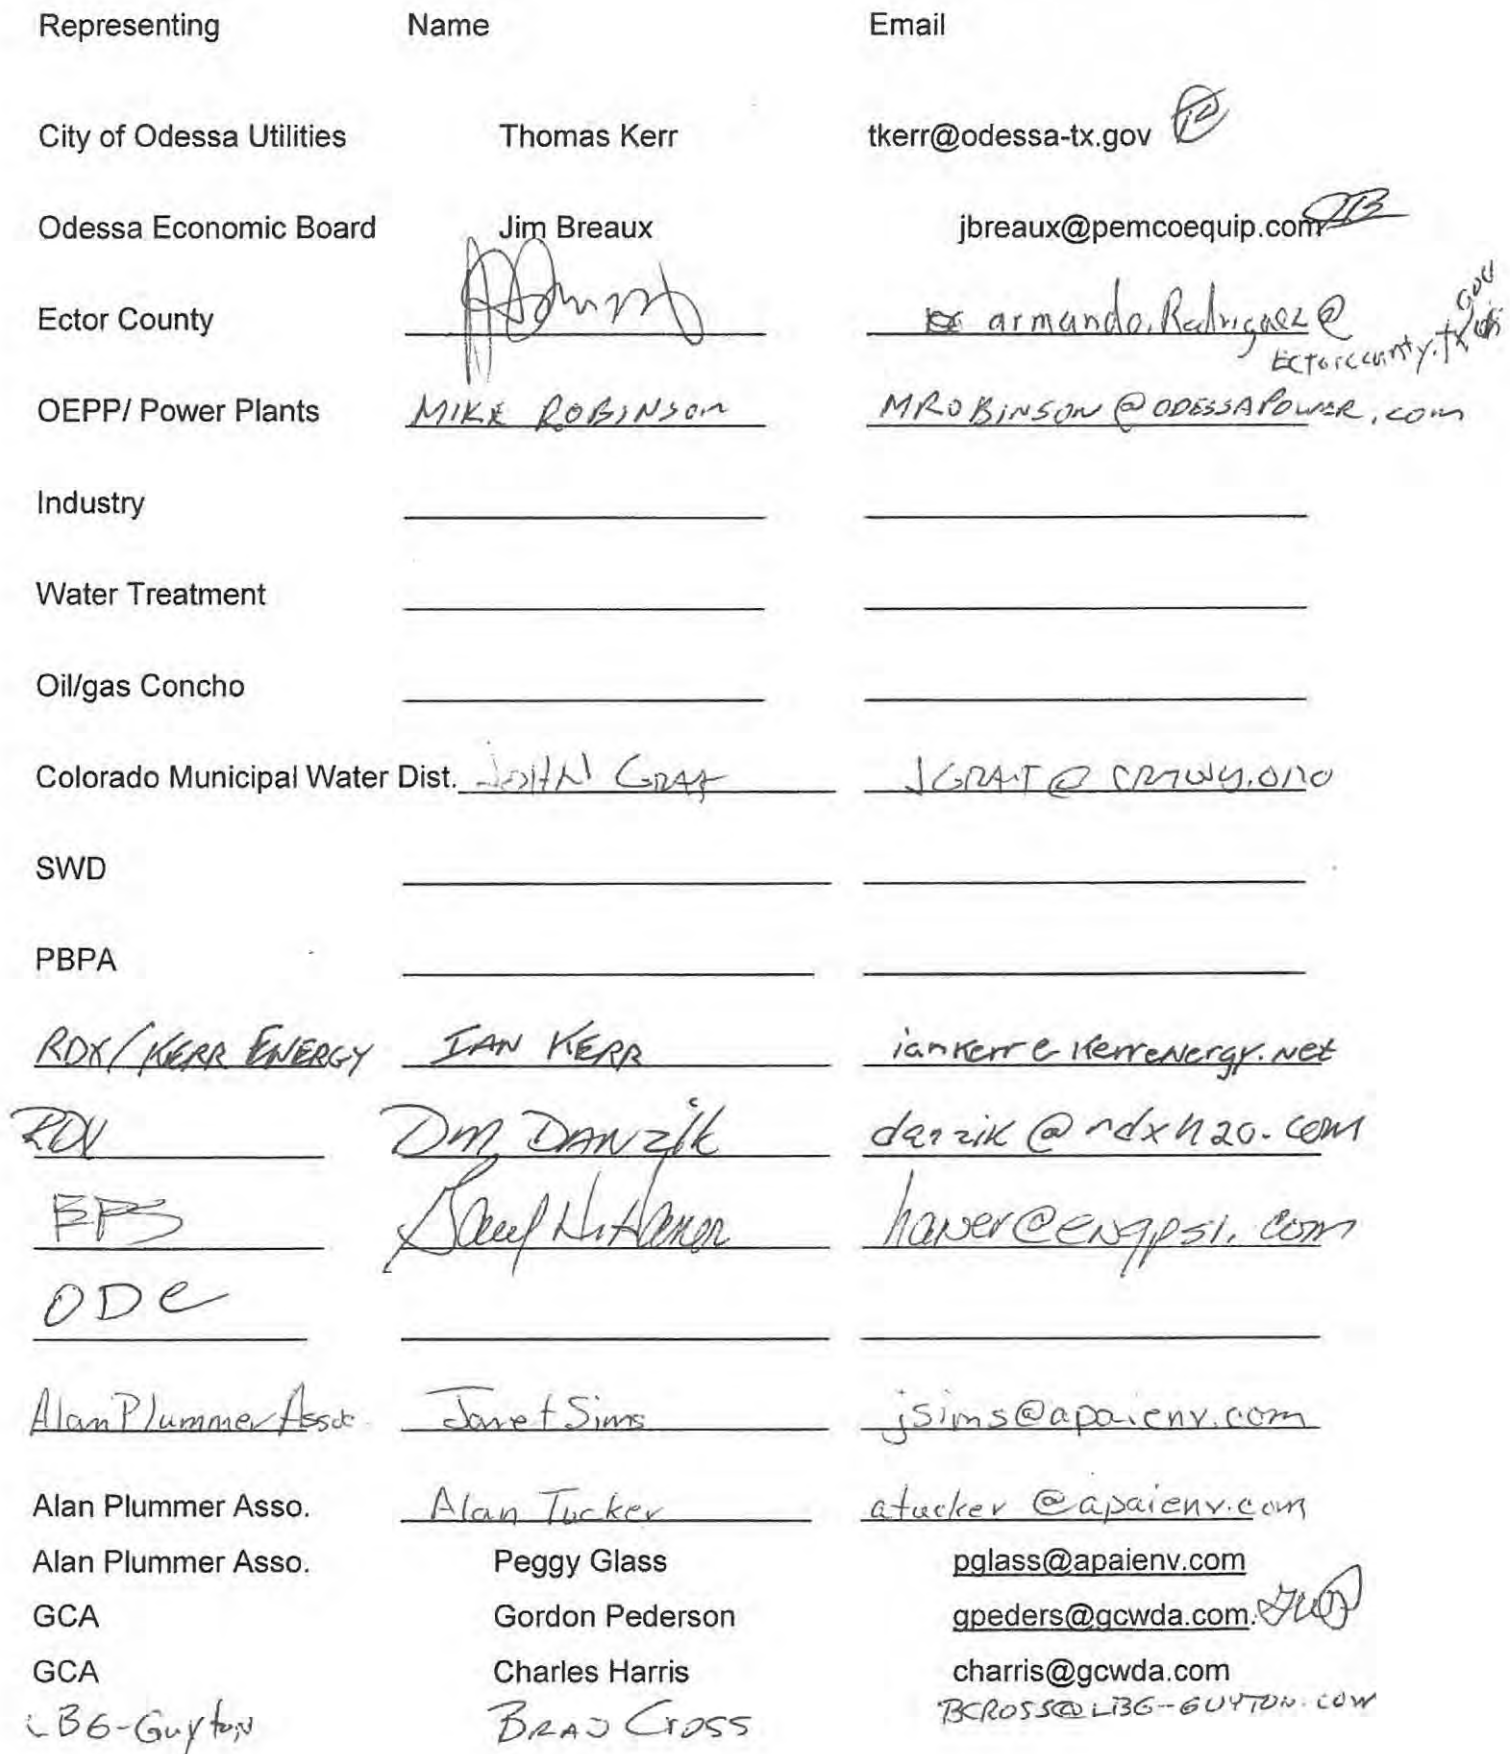 Representing Name Email
City of Odessa Utilities Thomas Kerr tkerr@odessa-tx.gov
Odessa Economic Board Jim Breaux jbreaux@pemcoequip.com JB
Ector County armando.Rodriguez@
Ectorcounty.tx gov
OEPP/ Power Plants MIKE ROBINSON MROBINSON@ODESSAPOWER.com
Industry
Water Treatment
Oil/gas Concho
Colorado Municipal Water Dist. JOHN GRANT JGRANT@
SWD
PBPA
RDX/KERR ENERGY IAN KERR iankerr@kerrenergy.net
RDX Dm DANZIK danzik@rdxh20.com
EPS @engpsi.com
ODC
Alan Plummer Assoc Janet Sims jsims@apaienv.com
Alan Plummer Asso. Alan Tucker atucker@apaienv.com
Alan Plummer Asso. Peggy Glass pglass@apaienv.com
GCA Gordon Pederson gpeders@gcwda.com.
GCA Charles Harris charris@gcwda.com
LBG-Guyton BRAD CROSS BCROSS@LBG-GUYTON.COM